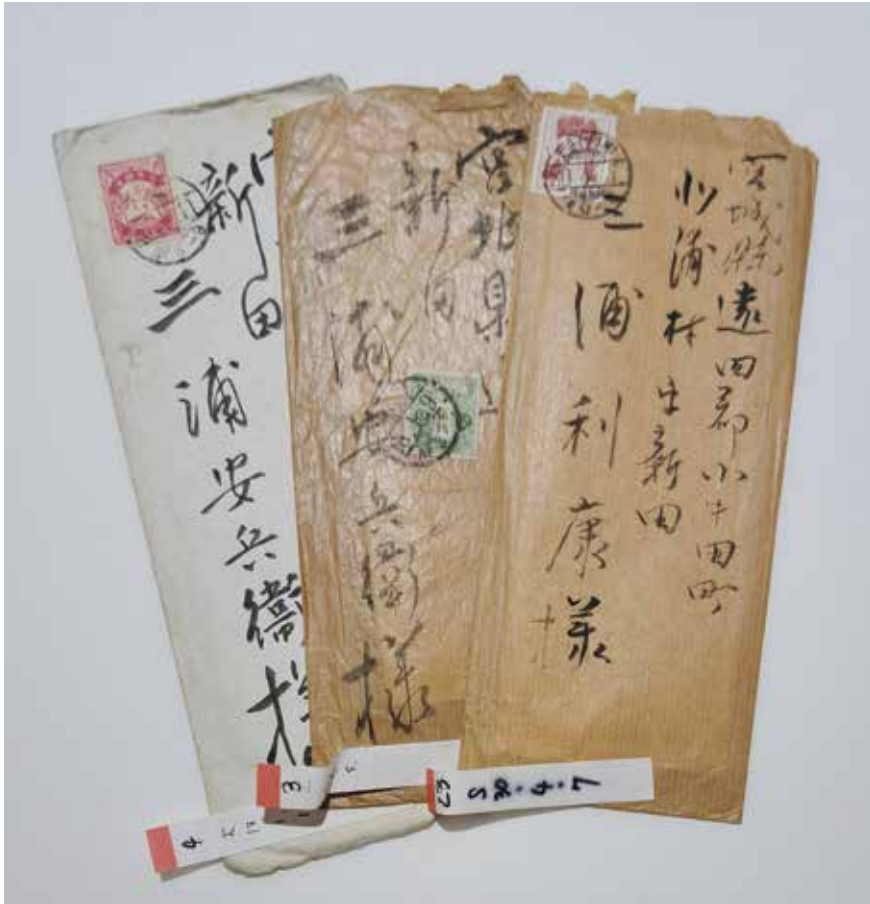 宮城縣遠田郡小牛田町
北浦村字新田
三浦利康様
宮城県
新田
三浦安兵衛様
新田
三浦安兵衛様
3
4